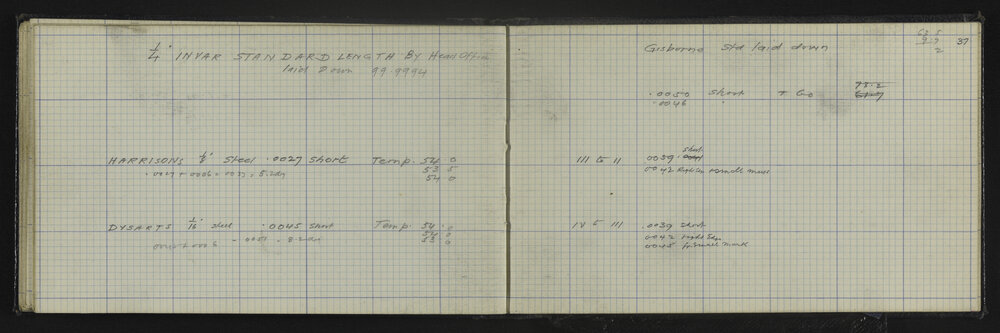 1/4" INVAR STANDARD LENGTH By Head Office
laid Down 99.9994
HARRISONS 1/8" Steel .0027 Short Temp. 54 0
53 5
54 0
.0027 + 0006 = 0033 = 5.2 deg
DYSARTS 1/16" steel .0045 short Temp. 54.0
54 0
53 0
0045 + 0006 = 0051 = 8.2 deg
Gisborne Std laid down
37
.0050 Short + Go 75.2
.0046 "
III to II 0039 short
0042 Right Edge small mark
IV to III .0039 Short
0042 Right Edge
0045 for small mark